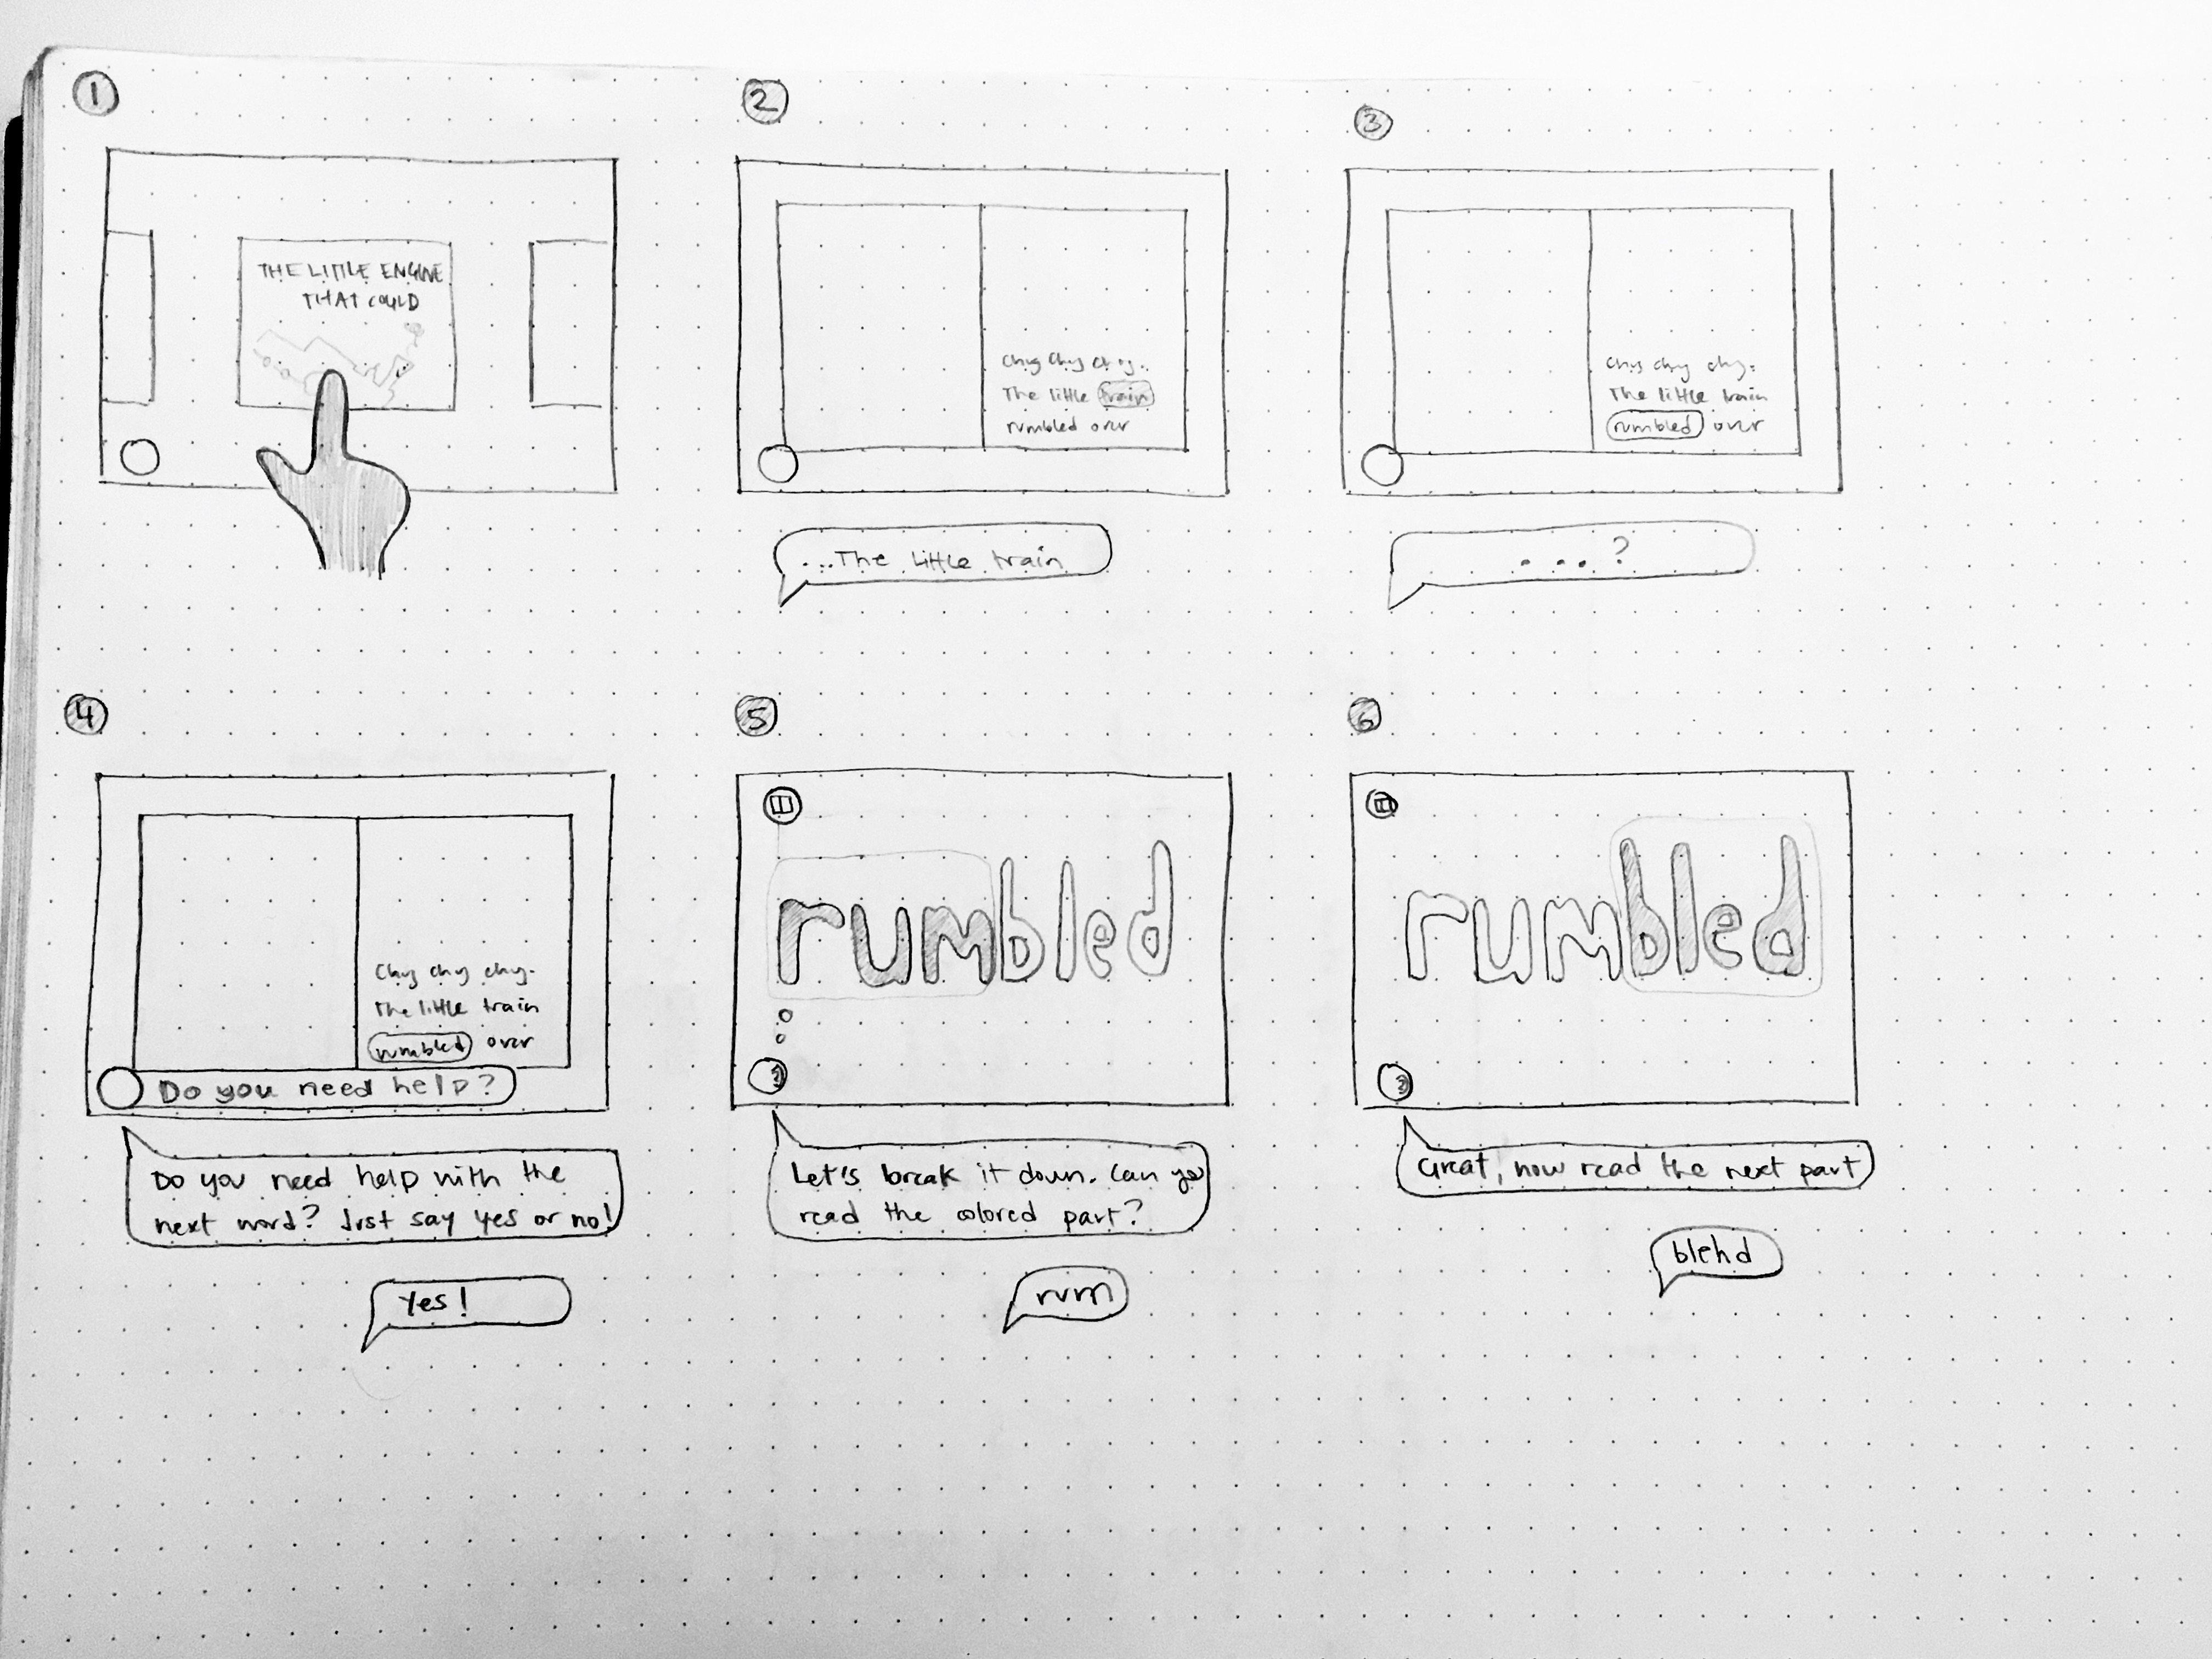 1
THE LITTLE ENGINE
THAT COULD
2
Chug Chug Chug.
The little train
rumbled over
...The little train
3
Chug chug chug.
The little train
rumbled over
...?
4
Chug chug chug.
The little train
rumbled over
Do you need help?
Do you need help with the
next word? Just say yes or no!
Yes!
5
rumbled
Let's break it down. Can you
read the colored part?
rum
6
rumbled
Great, now read the next part
blehd